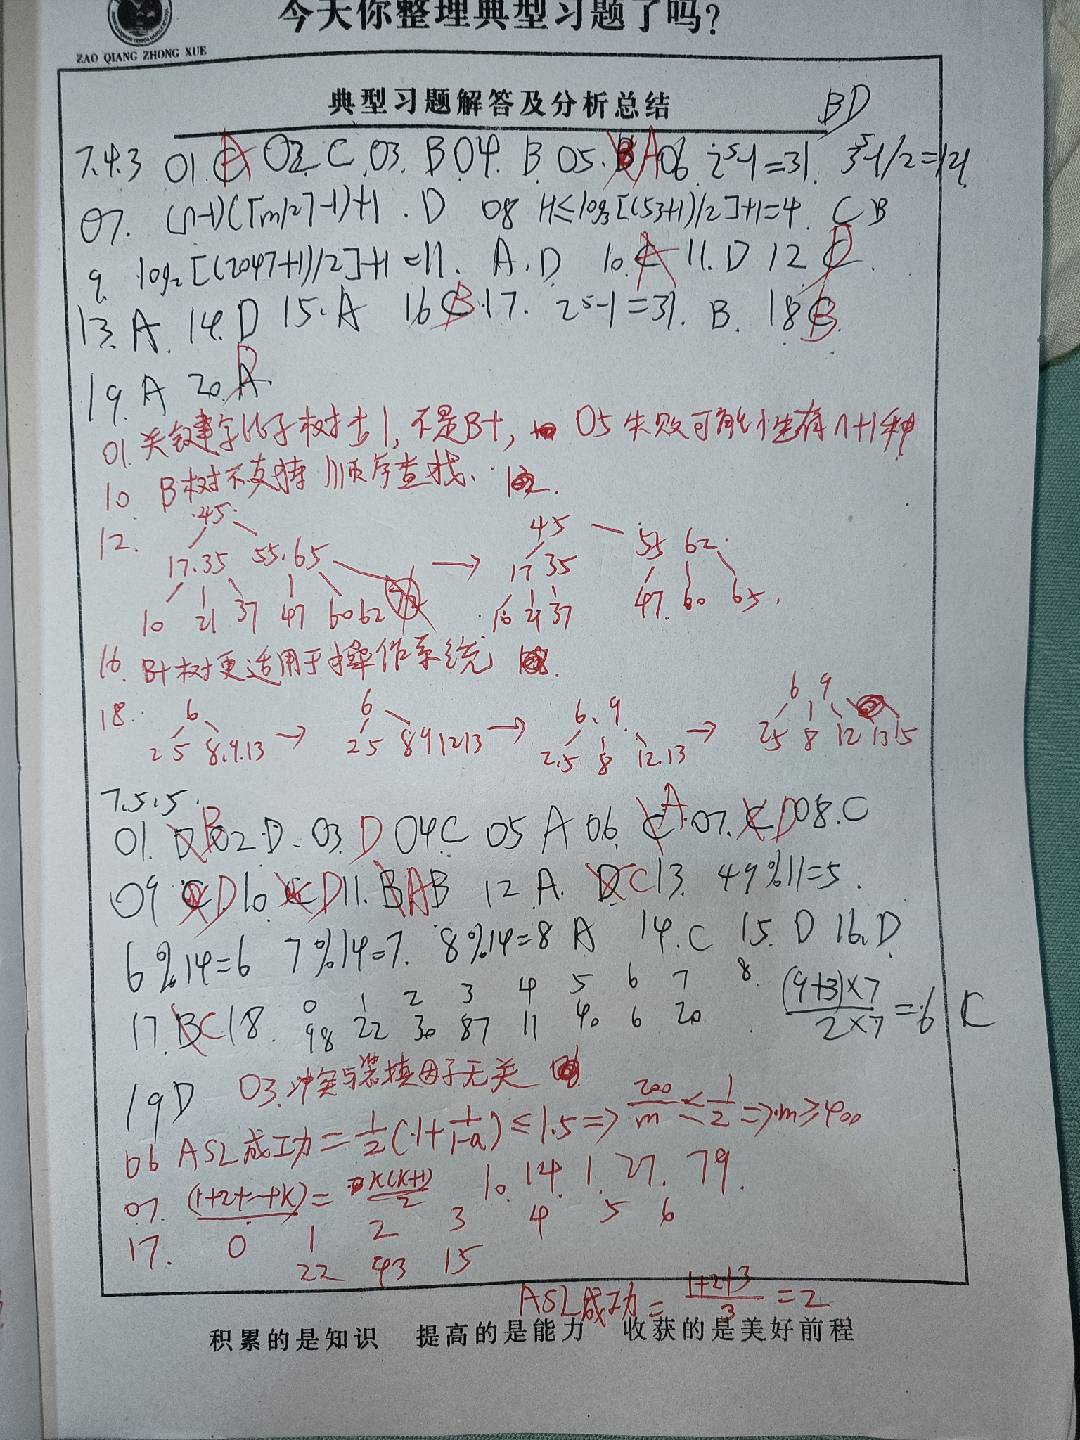 今天你整理典型习题了吗?
ZAO QIANG ZHONG XUE
典型习题解答及分析总结
BD
7.4.3 01. A 02 C 03. B 04. B 05. A 06. 2⁵-1=31. 3⁵-1/2=121
07. (n-1)(⌈m/2⌉-1)+1. D 08 H≤log₃[(53+1)/2]+1=4. C B
9. log₂[(2047+1)/2]+1=11. A. D 10. A 11. D 12 D
13. A. 14. D 15. A 16 B 17. 2⁵-1=31. B. 18 B
19. A 20. D
01. 关键字比子树少1, 不是B+, 05 失败可能性有n+1种
10 B树不支持顺序查找.
12.
45 45
17.35 55.65 → 17 35 55 62
10 21 37 47 60 62 10 21 37 47. 60 65.
16. B+树更适用于操作系统
18. 6 6 6. 9 6 9
2 5 8.9.13 → 2 5 8 9 12 13 → 2.5 8 12.13 → 25 8 12 13 15
7.5.5.
01. B 02. D. 03. D 04 C 05 A 06. A 07. D 08. C
09 D 10. D 11. A B 12 A. C 13. 49%11=5.
6%14=6 7%14=7. 8%14=8 A 14. C 15. D 16. D
0 1 2 3 4 5 6 7 8.
17. C 18. 98 22 30 87 11 40 6 20 (9+3)×7/2×7=6 C
19 D 03. 冲突与装填因子无关
06 ASL成功=1/2(1+1/1-a)≤1.5⇒200/m≤1/2⇒m≥400
07. (1+2+…+K)=K(K+1)/2 1. 14. 1. 27. 79.
17. 0 1 2 3 4 5 6
22 43 15
ASL成功=1+2+3/3=2
积累的是知识 提高的是能力 收获的是美好前程